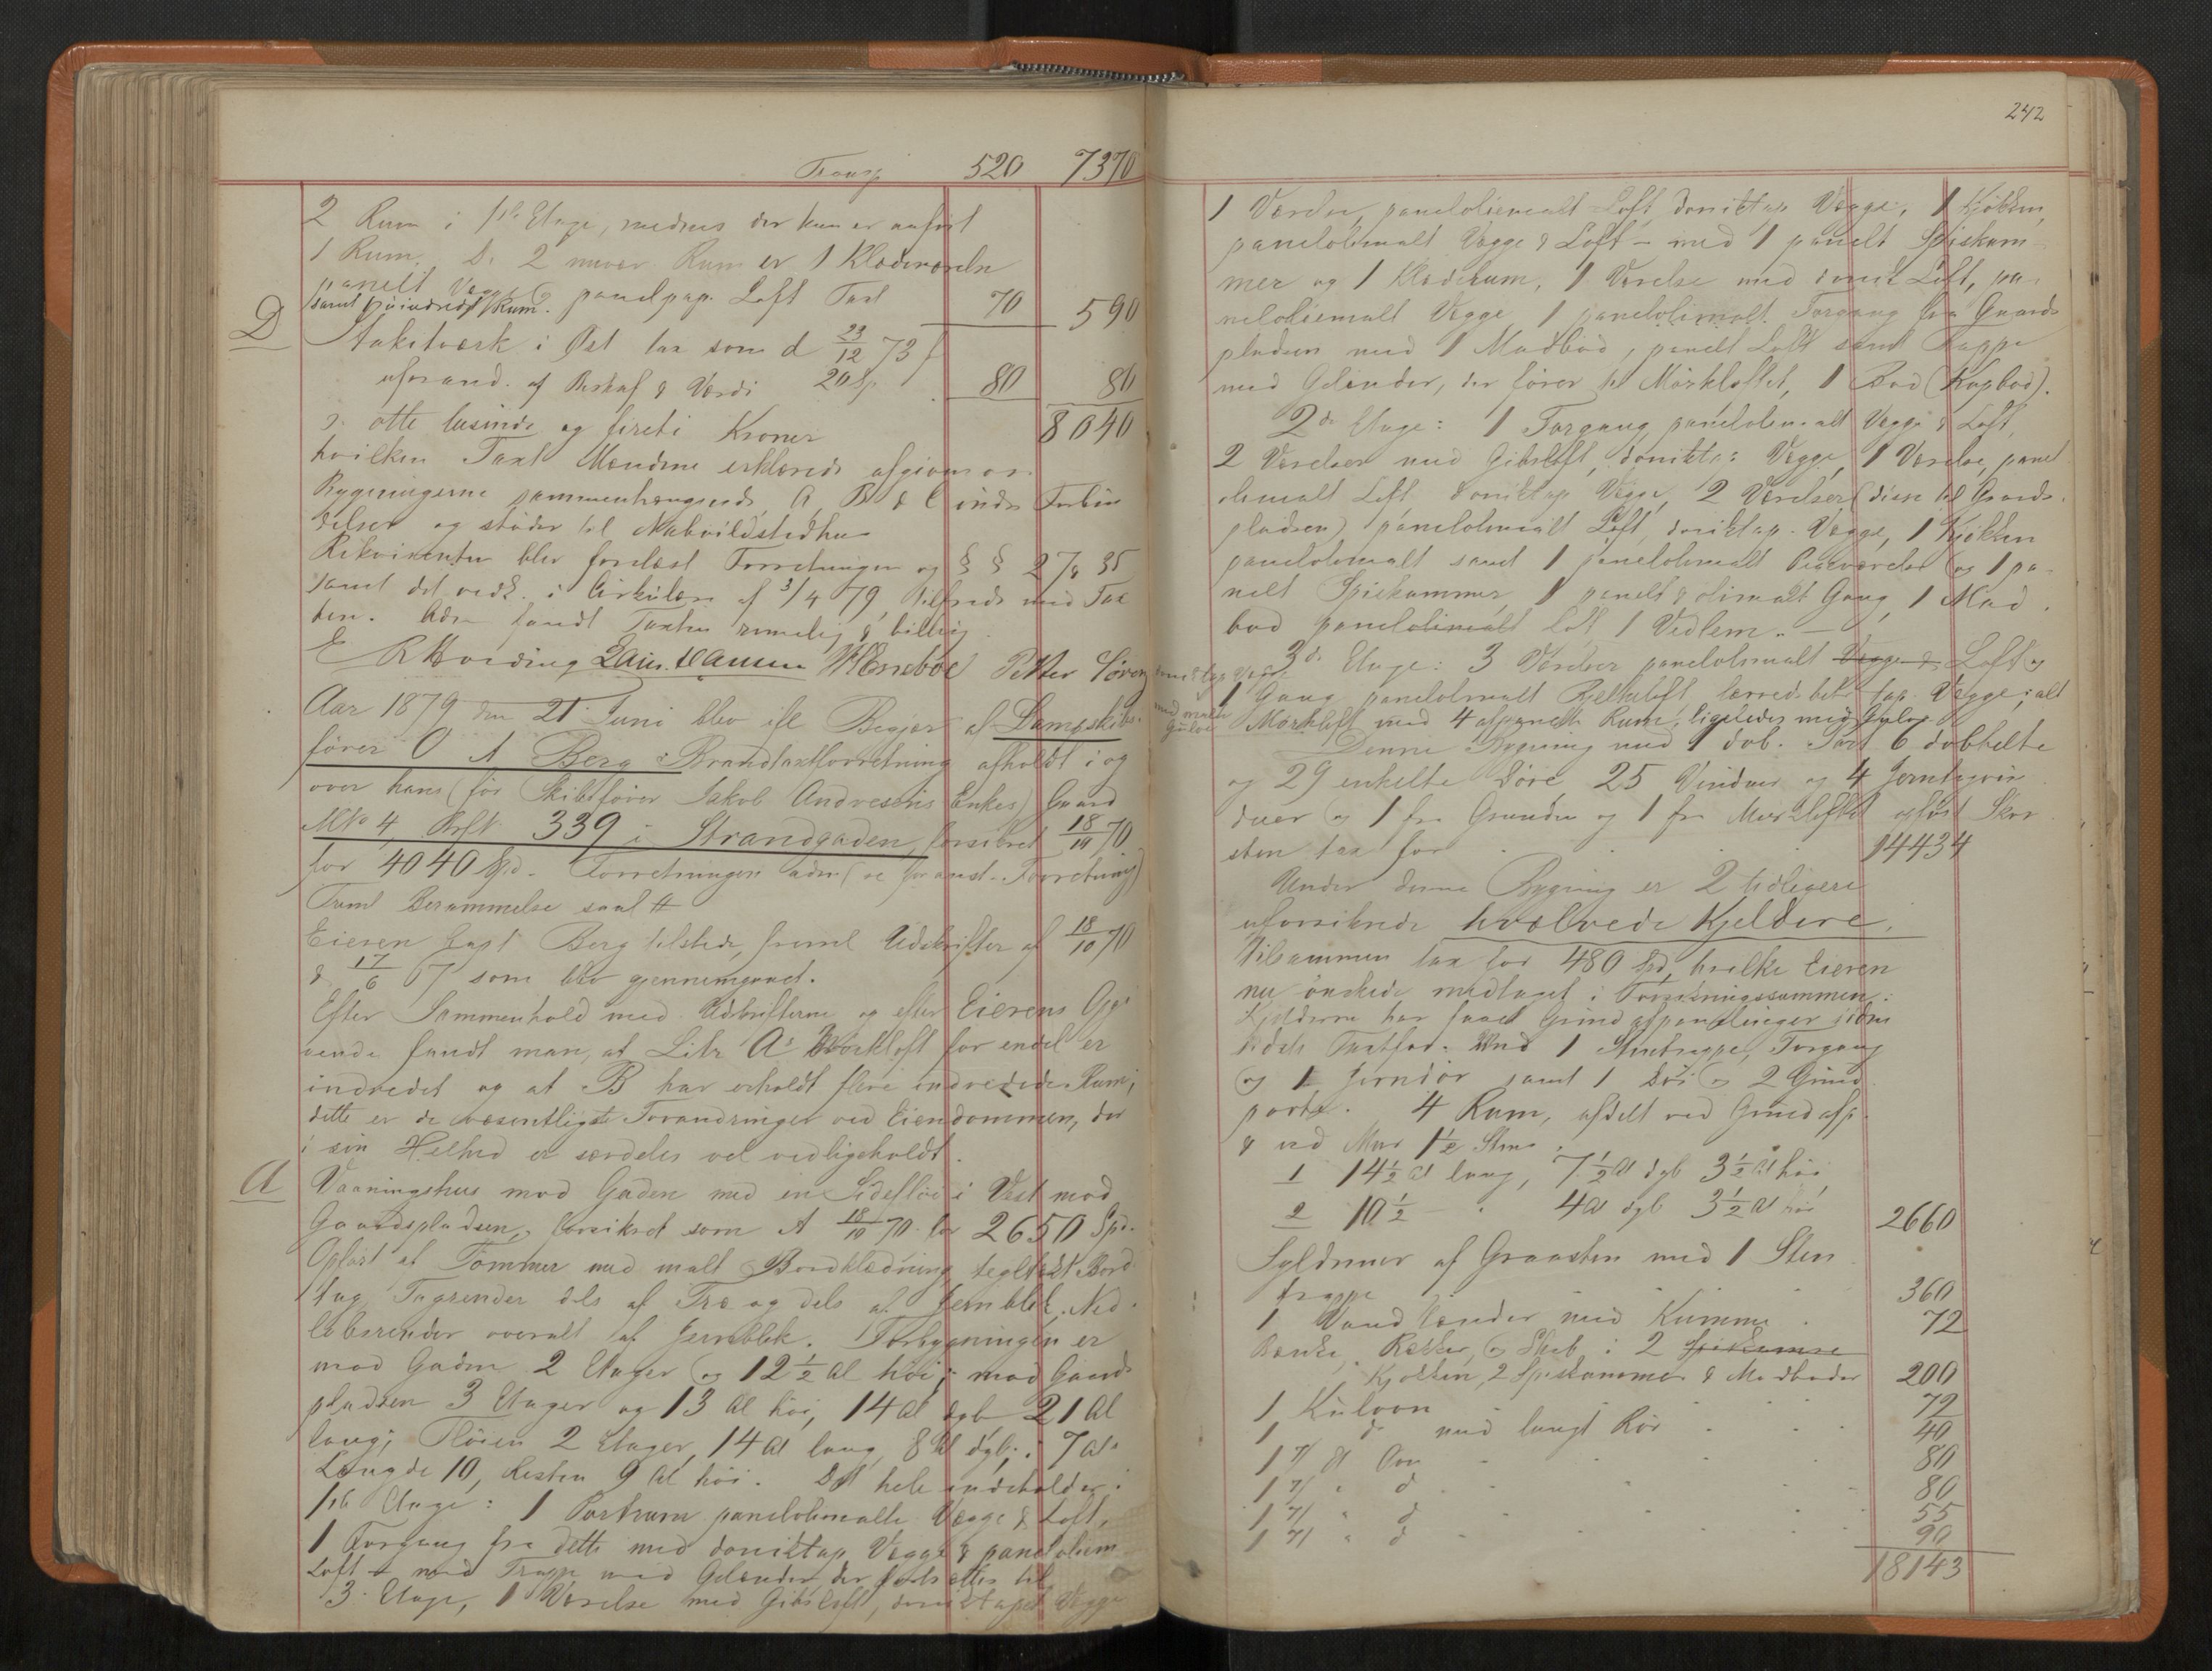 Transp 520 7370
2 Rum i 1ste Etage, medens der kun er anført
1 Rum. De 2 nuvær. Rum er 1 Klædeværelse
panelt Vægge panelpap. Loft Taxt 70 590
samt 1 uindredet Rum.
D Stakitværk i Øst tax som d 23/12 73 f
uforand. af Beskaf & Værdi 20 Sp. 80 80
d. otte tusinde og fireti Kroner 8040
hvilken Taxt Mændene erklærede afgiven
Bygningerne sammenhængende A, B & C inde Forbin
delser og støder til Nabo
Rekvirenten blev forelæst Forretningen og § § 27 & 35
samt det vedk. i Cirkulære af 3/4 79, tilfreds med Tax
ten. Adm fandt Taxten rimelig & billig
E R Hvoslef Laur. Hansen Petter Søren
Aar 1879 den 21 Juni blev ifl Begjær af Dampskibs-
fører O A Berg Brandtaxtforretning afholdt i og
over hans (før Skibsfører Jakob Andresens Enkes) Gaard
Mtr 4, Brfr 339 i Strandgaden, forsikret 18/10 70
for 4040 Spd. Forretningen adm (se foranst. Forretning)
Fremt Berammelse saal #
Eieren Capt Berg tilstede, freml Udskrifter af 18/10 70
& 17/6 67 som blev gjennemgaaet.
Efter Sammenhold med Udskrifterne og efter Eierens Opgi
vende fandt man, at Litr A's Mørkloft for endel er
indredet og at B har erholdt flere indredede Rum;
dette er de væsentligste Forandringer ved Eiendommen, der
i sin Helhed er særdeles vel vedligeholdt.
A Vaaningshus mod Gaden med en Sidefløi i Vest mod
Gaardspladsen, forsikret som A 18/10 70 for 2650 Spd.
Opført af Tømmer med malt Bordklædning tegltækt Bord
tag, Tagrender dels af Træ og dels af Jernblik, Ned
løbsrender overalt af Jernblik. Forbygningen er
mod Gaden 2 Etager og 12 1/2 al høi; mod Gaards
pladsen 3 Etager og 13 al høi, 14 al dyb 21 al
lang; Fløien 2 Etager, 14 al lang 8 al dyb; i 7 al
Længde 10, Resten 9 al høi. Det hele indeholder i
1ste Etage: 1 Portrum paneloliemalte Vægge & Loft,
1 Forgang fra dette med doniktap Vægge & paneloliem
Loft & med Trappe med Gelænder der fortsættes til
3. Etage, 1 Værelse med Gibsloft, doniktapet Vægge
242
1 Værelse, paneloliemalt Loft doniktap Vægge, 1 Kjøkken,
paneloliemalt Vægge & Loft - med 1 panelt Spiskam-
mer og 1 Klæderum, 1 Værelse med donikt Loft, pa-
neloliemalt Vægge 1 paneloliemalt Forgang fra Gaards
pladsen med 1 Madbod, panelt Loft samt Trappe
med Gelænder, der fører til Mørkloftet, 1 Bod (Kopbod).
2de Etage: 1 Forgang paneloliemalt Vægge & Loft,
2 Værelser med Gibsloft, doniktap: Vægge, 1 Værelse, panel
oliemalt Loft doniktap Vægge, 2 Værelser (disse til Gaards-
pladsen) paneloliemalt Loft, doniktap. Vægge, 1 Kjøkken
paneloliemalt samt 1 paneloliemalt Pigeværelse og 1 pa-
nelt Spiskammer, 1 panelt & oliemalt Gang, 1 Mad
bod paneloliemalt Loft 1 Vedlem. -
3de Etage: 3 Værelser paneloliemalt Vægge & Loft og
donikttap Vægge
1 Gang paneloliemalt Bjelkeloft, lærredsbetr tap. Vægge; alt
med malte Gulve
Mørkloft med 4 afpanelte Rum, ligeledes med Gulve
Denne Bygning med 1 dob. Port 6 dobbelte
og 29 enkelte Døre, 25 Vinduer og 4 Jerntagvin
duer og 1 fra Grunden og 1 fra Mørkloftet opført Skor
sten tax for 14434
Under denne Bygning er 2 tidligere
uforsikrede hvælvede Kjeldere,
tilsammen tax for 480 Spd, hvilke Eieren
nu ønskede medtaget i Forsikringssummen.
Kjelderne har faaet Grind afpanelinger siden
sidste Taxtfor. Med 1 Stentrappe, Forgang
og 1 Jerndør samt 1 Dør og 2 Grind
porte. 4 Rum, afdelt ved Grindafp.
& ved Mur 1 1/2 Stens.
1 14 1/2 al lang, 7 1/2 al dyb 3 1/2 al høi
2 10 1/2 " 4 al dyb 3 1/2 al høi 2660
Syldmur af Graasten med 1 Sten
trappe 360
1 Vand med Kumme 72
Bænke, Rækker, og Skab i 2
Kjøkken, 2 Spiskammer & Madboder 200
1 Kulovn 72
1 d med langt Rør 40
1 2/ Et Ovn 80
1 2/ " d 80
1 2/ " d 55
1 2/ " d 90
18143